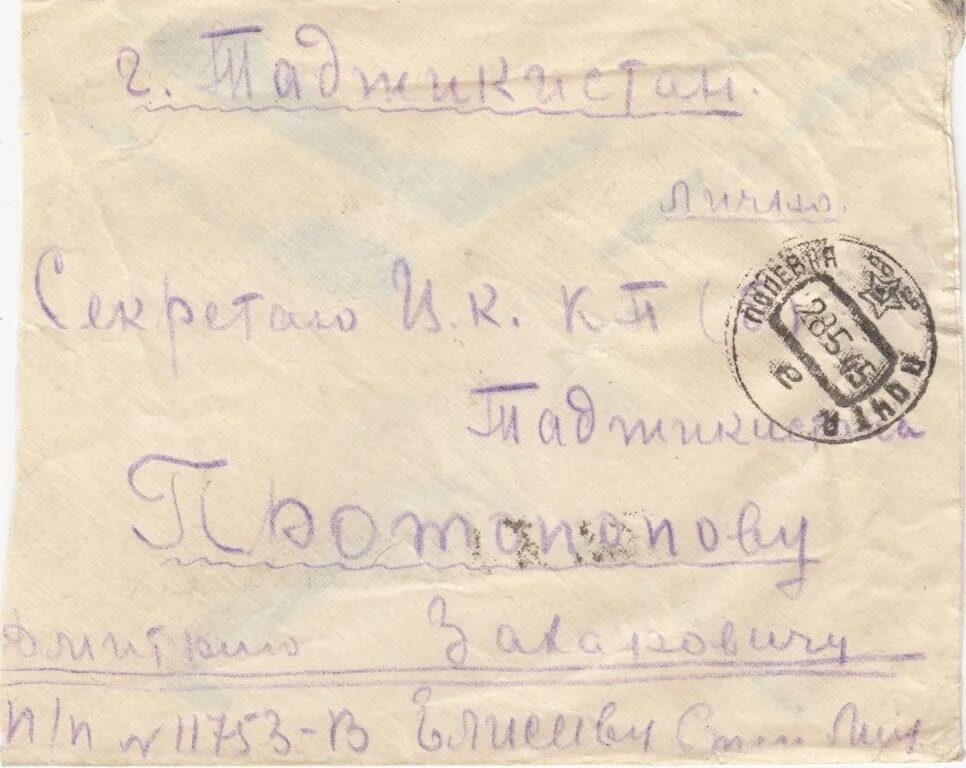 г. Таджикистан.
Лично.
Секретаю Ц.К. КП(б)
Таджикистана
Протопопову
Дмитрию Захаровичу
П/П № 11753-В Елисеву
ПОЛЕВАЯ ПОЧТА
28 5 45